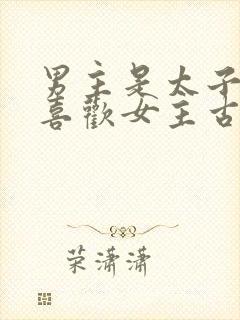 男主是太子
喜歡女主古
荣潇潇